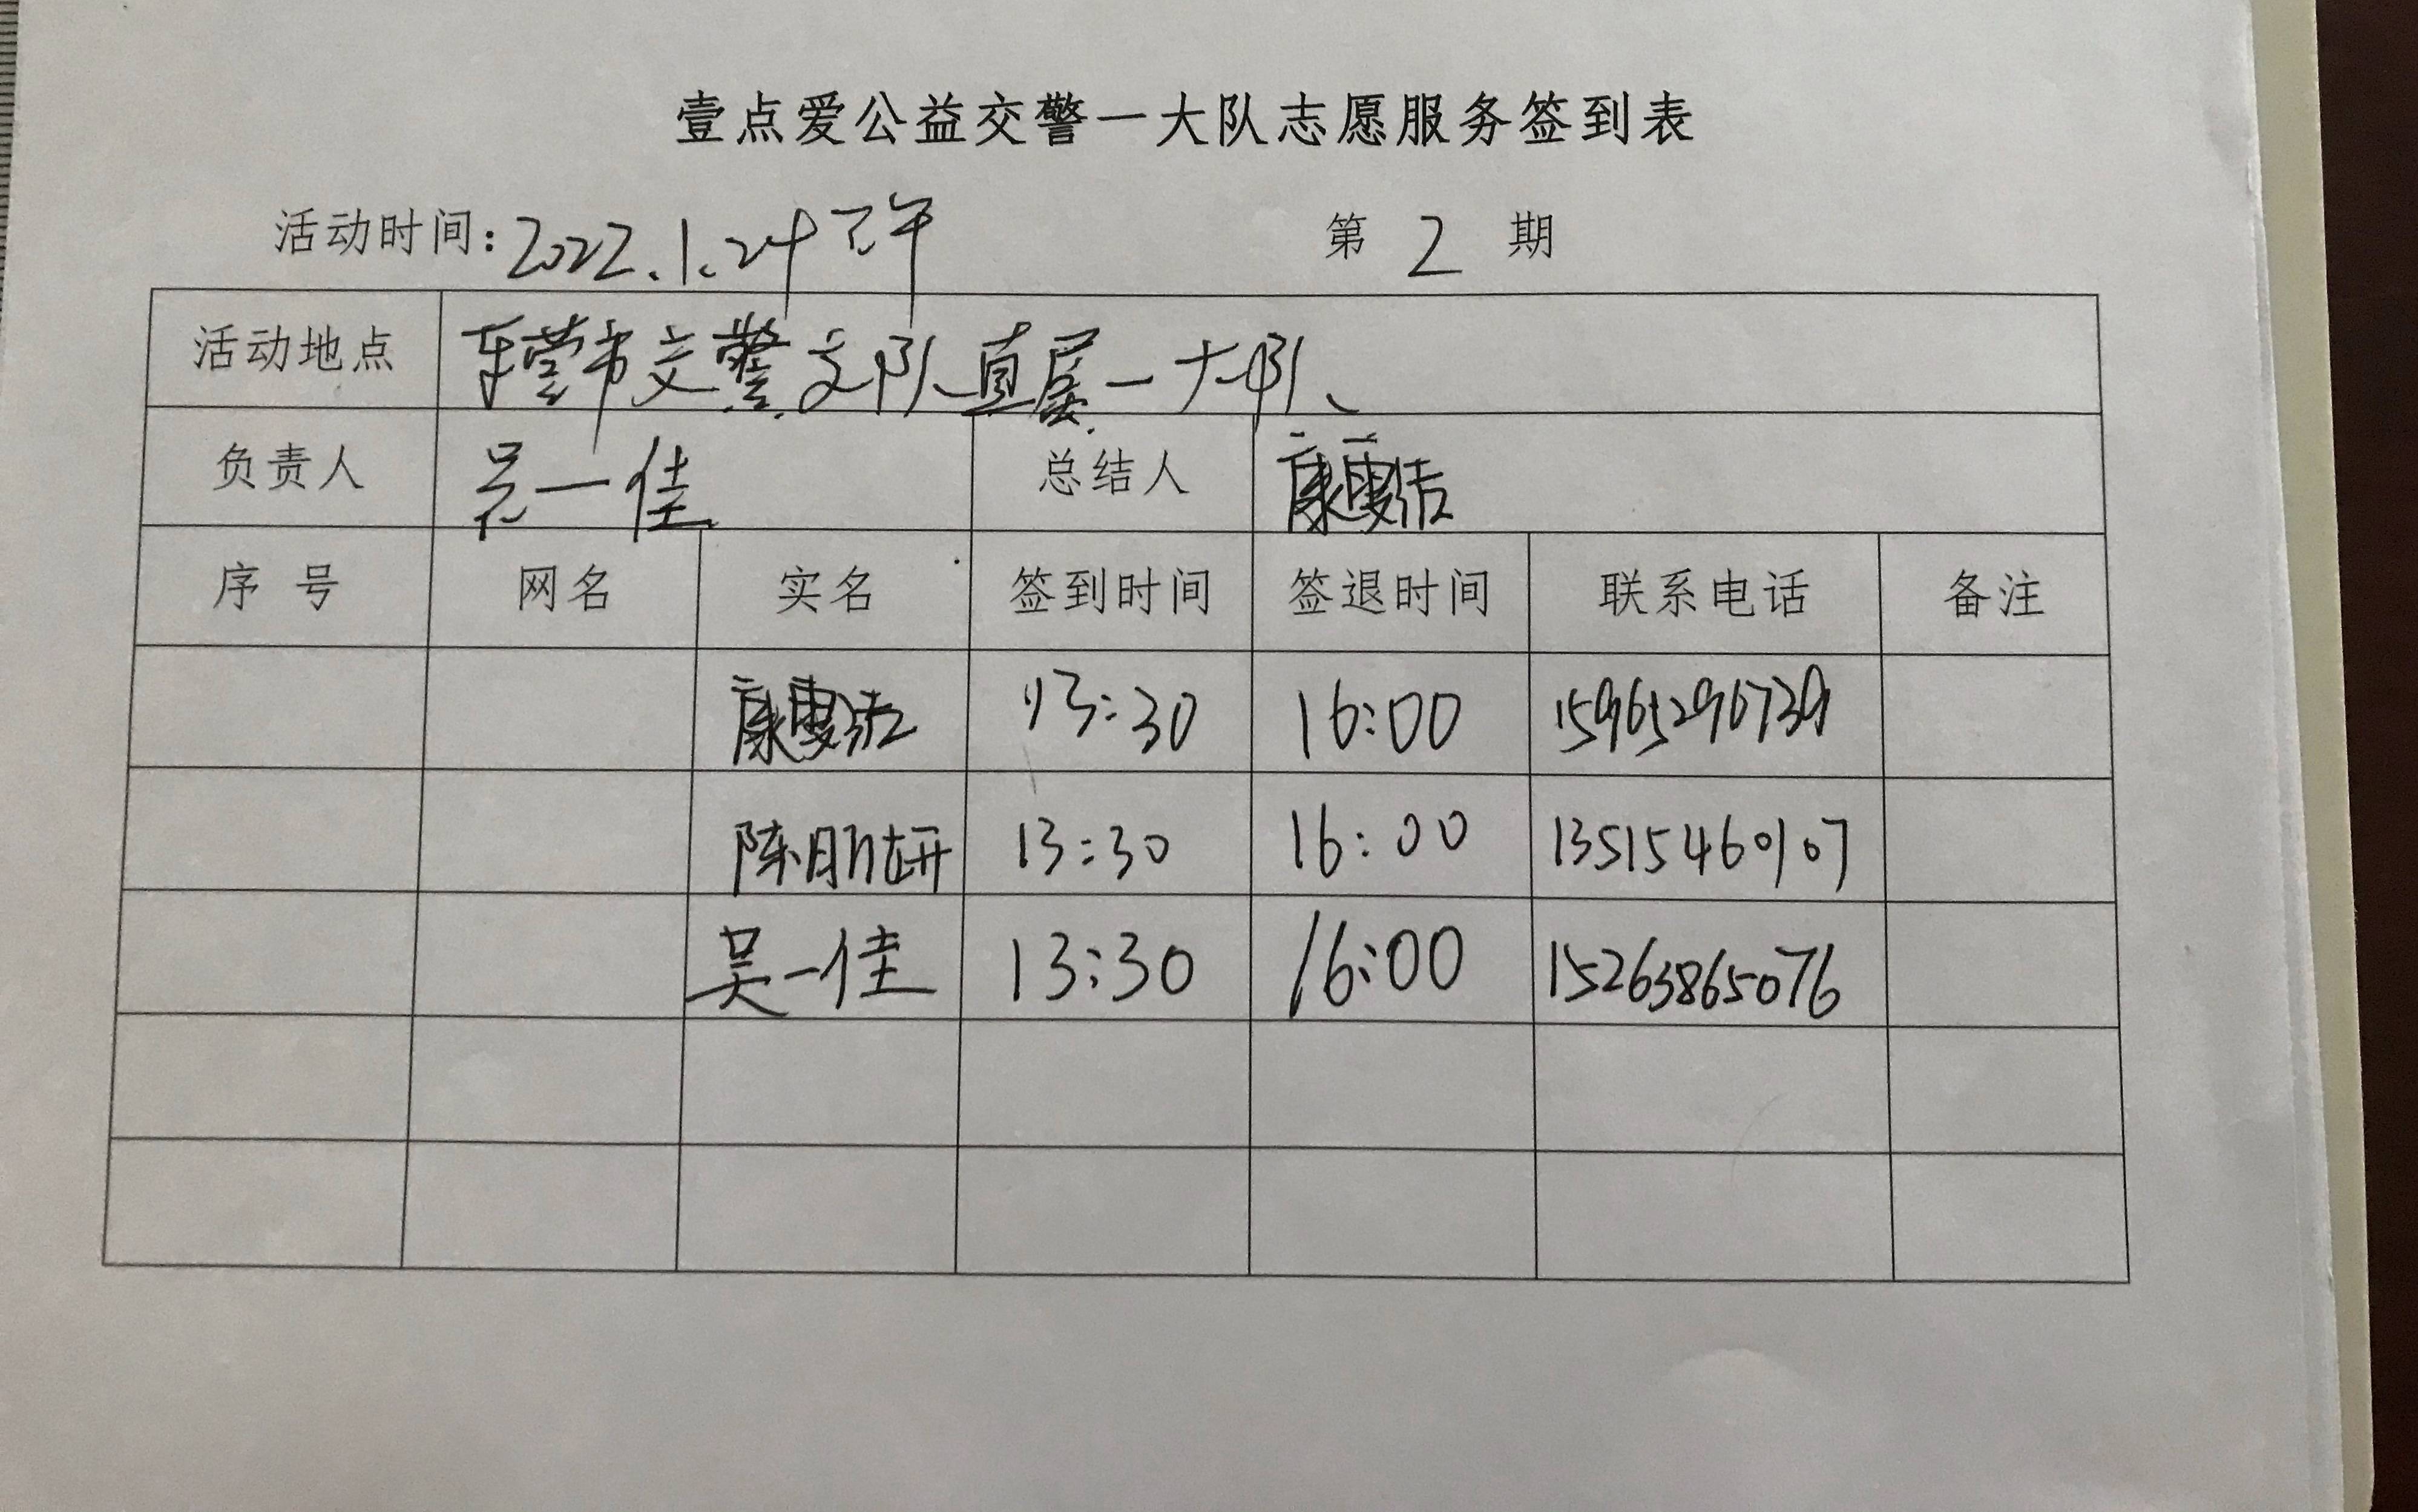 壹点爱公益交警一大队志愿服务签到表
活动时间:2022.1.24下午 第 2 期
活动地点 东营市交警支队直属一大队
负责人 吴一佳 总结人 康
序 号 网名 实名 签到时间 签退时间 联系电话 备注
康 13:30 16:00 15965296739
陈明妍 13:30 16:00 13515460107
吴一佳 13:30 16:00 15263865076